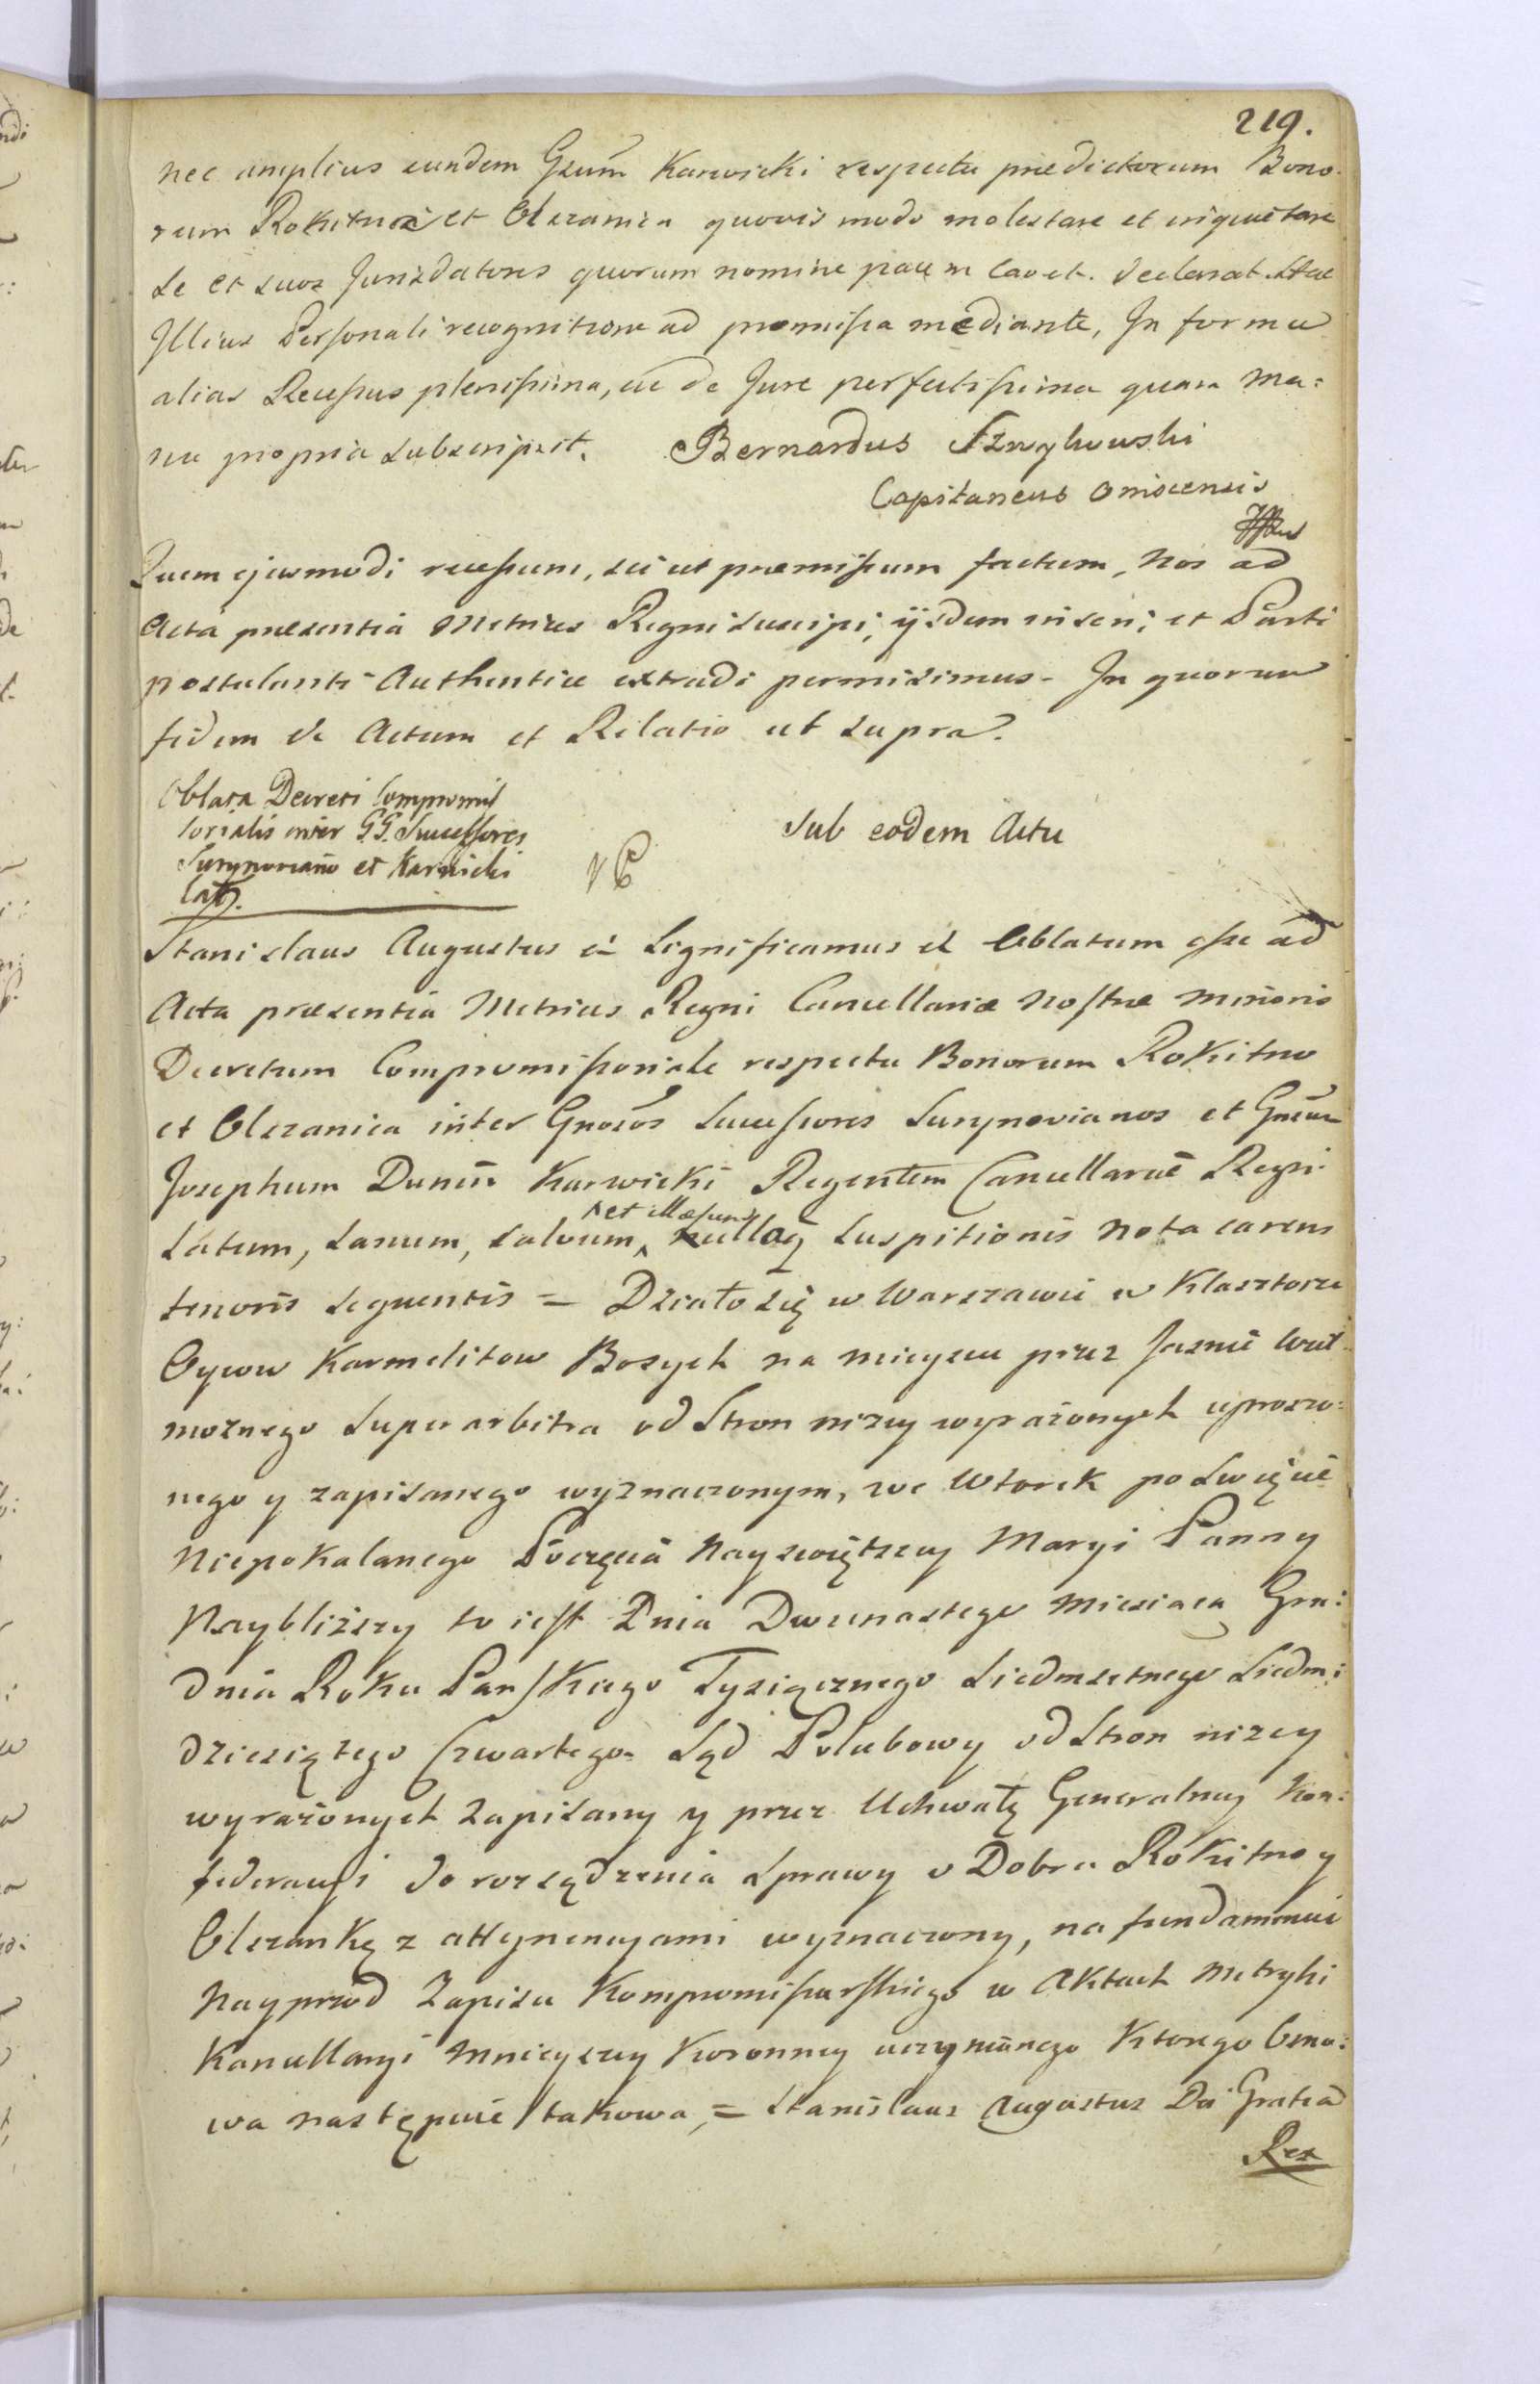 219.
nec amplius eundem Gsum Karwicki respectu praedictorum Bono:
rum Rokitno et Olszanica quovis modo molestare et inquietare
se et suos Jurisdatores quorum nomine pacem cavet. declarat. Stae
Illius Personali recognitione ad praemissa mediante, In forma
alias Recessus plenissima, ac de Jure perfectissima quam ma:
nu propria subscripsit. Bernardus
Capitaneus
Quem ejusmodi recessum, sic ut praemissum factum, Nos ad
Acta praesentia Metrices Regni suscipi, ijsdem inseri, et Parti
postulanti Authentice extradi permisimus. In quorum
fidem &c Actum et Relatio ut supra.
Oblata Decreti Compromis
sorialis inter G.G. Successores
Surynoviano et Karwicki
lat.
Sub eodem Actu
Stanislaus Augustus &c Significamus &c Oblatum esse ad
Acta praesentia Metrices Regni Cancellariae Nostrae minoris
Decretum Compromissoriale respectu Bonorum Rokitno
et Olszanica inter Gnosos Successores Surynovianos et Gnsum
Josephum Dunin Karwicki Regentem Cancellariae Regni
Latum, sanum, salvum, et illaesum nullaq suspitionis nota carens
tenoris sequentis = Działo się w Warszawie w Klasztorze
Oycow Karmelitow Bosych na mieyscu przez Jasnie Wiel
moznego Superarbitra od Stron nizey wyrażonych uproszo:
nego y zapisanego wyznaczonym, we Wtorek po Swięcie
Niepokalanego Poczęcia Nayswiętszey Maryi Panny
Naybliższy to iest Dnia Dwunastego Miesiaca Gru:
dnia Roku Pańskiego Tysiącznego Siedmsetnego Siedm:
dziesiątego Czwartego. Sąd Polubowy od Stron nizey
wyrażonych Zapisany y przez Uchwałę Generalney Kon:
federacyi do rozsądzenia sprawy o Dobra Rokitno y
Olszankę z attynencyami wyznaczony, na fundamencie
Nayprzod Zapisu Kompromissarskiego w Aktach Metryki
Kancellaryi Mnieyszey Koronney uczynionego Ktorego Osno:
wa następuie takowa, = Stanislaus Augustus Dei Gratia
Rex